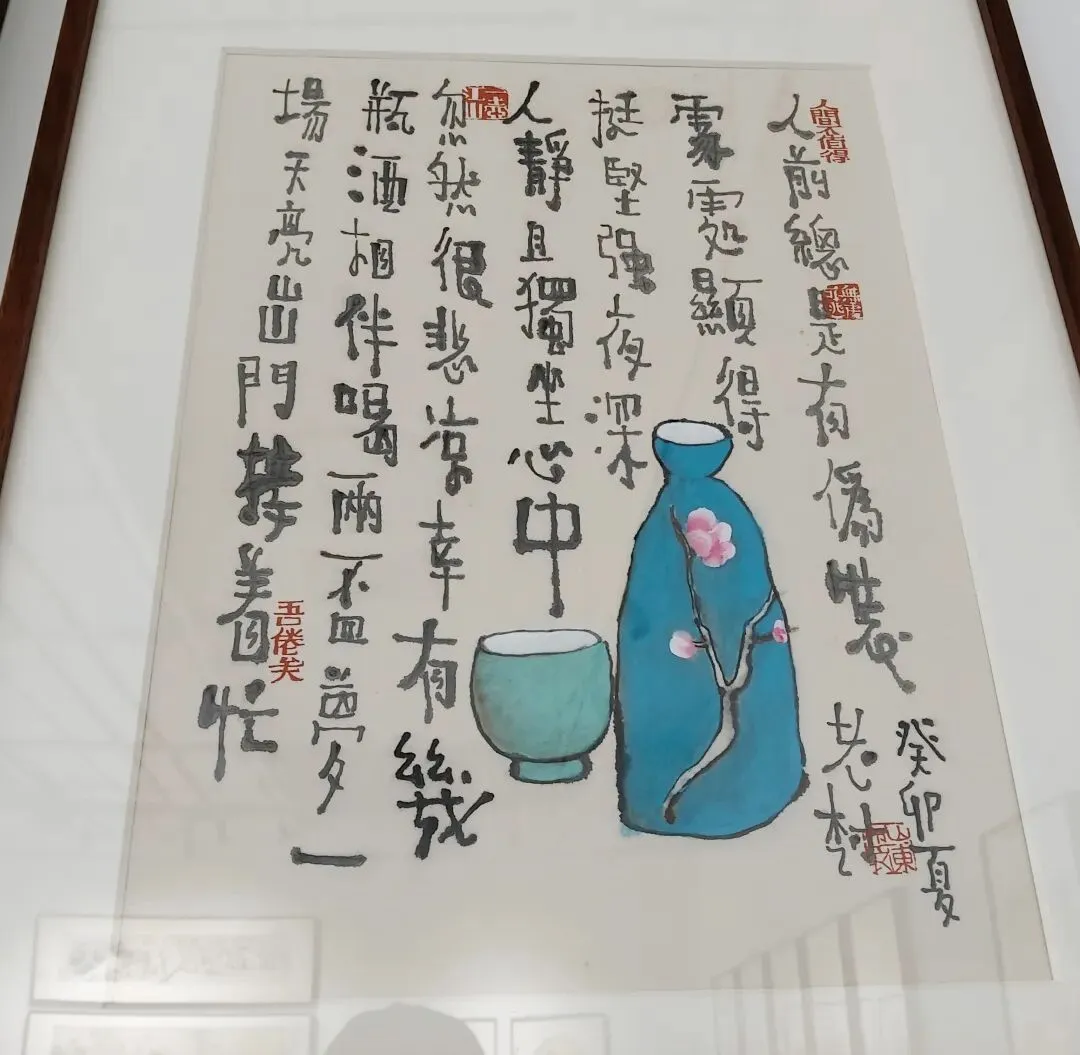 人間不值得
人前總是有偽裝
處處顯得
挺堅强夜深
人靜且獨坐心中
忽然很悲涼幸有幾
瓶酒相伴喝兩盃夢一
場天亮出門接着忙
吾倦矣
癸卯夏
老树